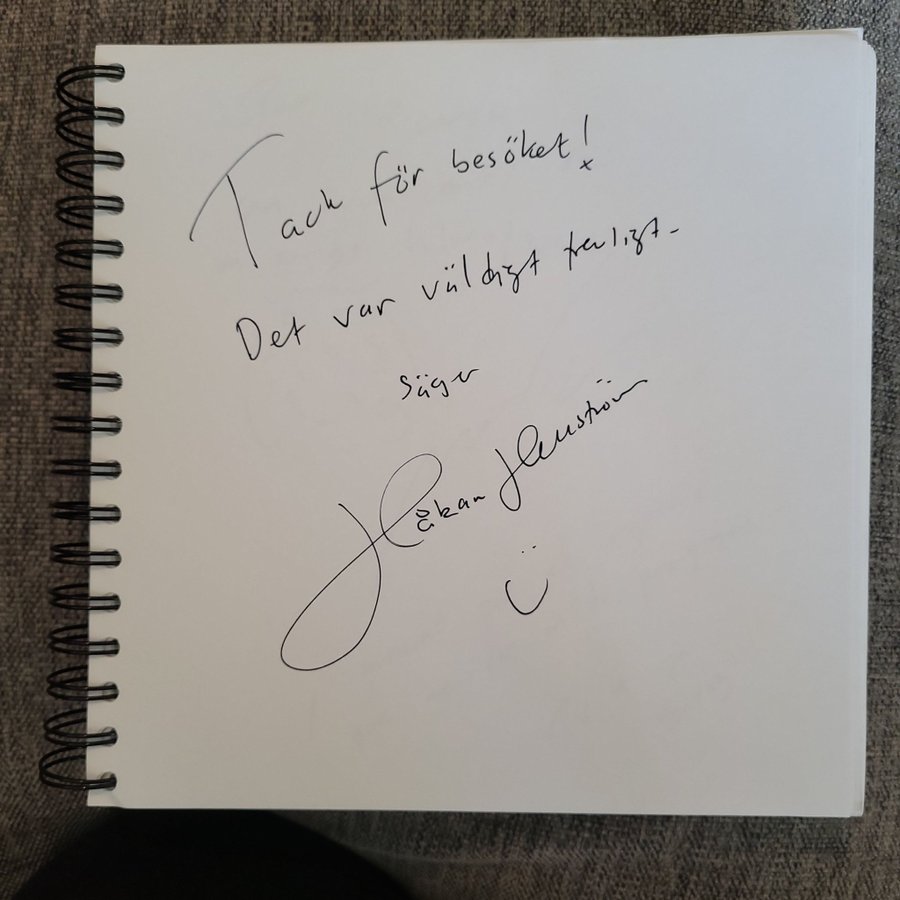 Tack för besöket!
Det var väldigt trevligt.
säger
Håkan